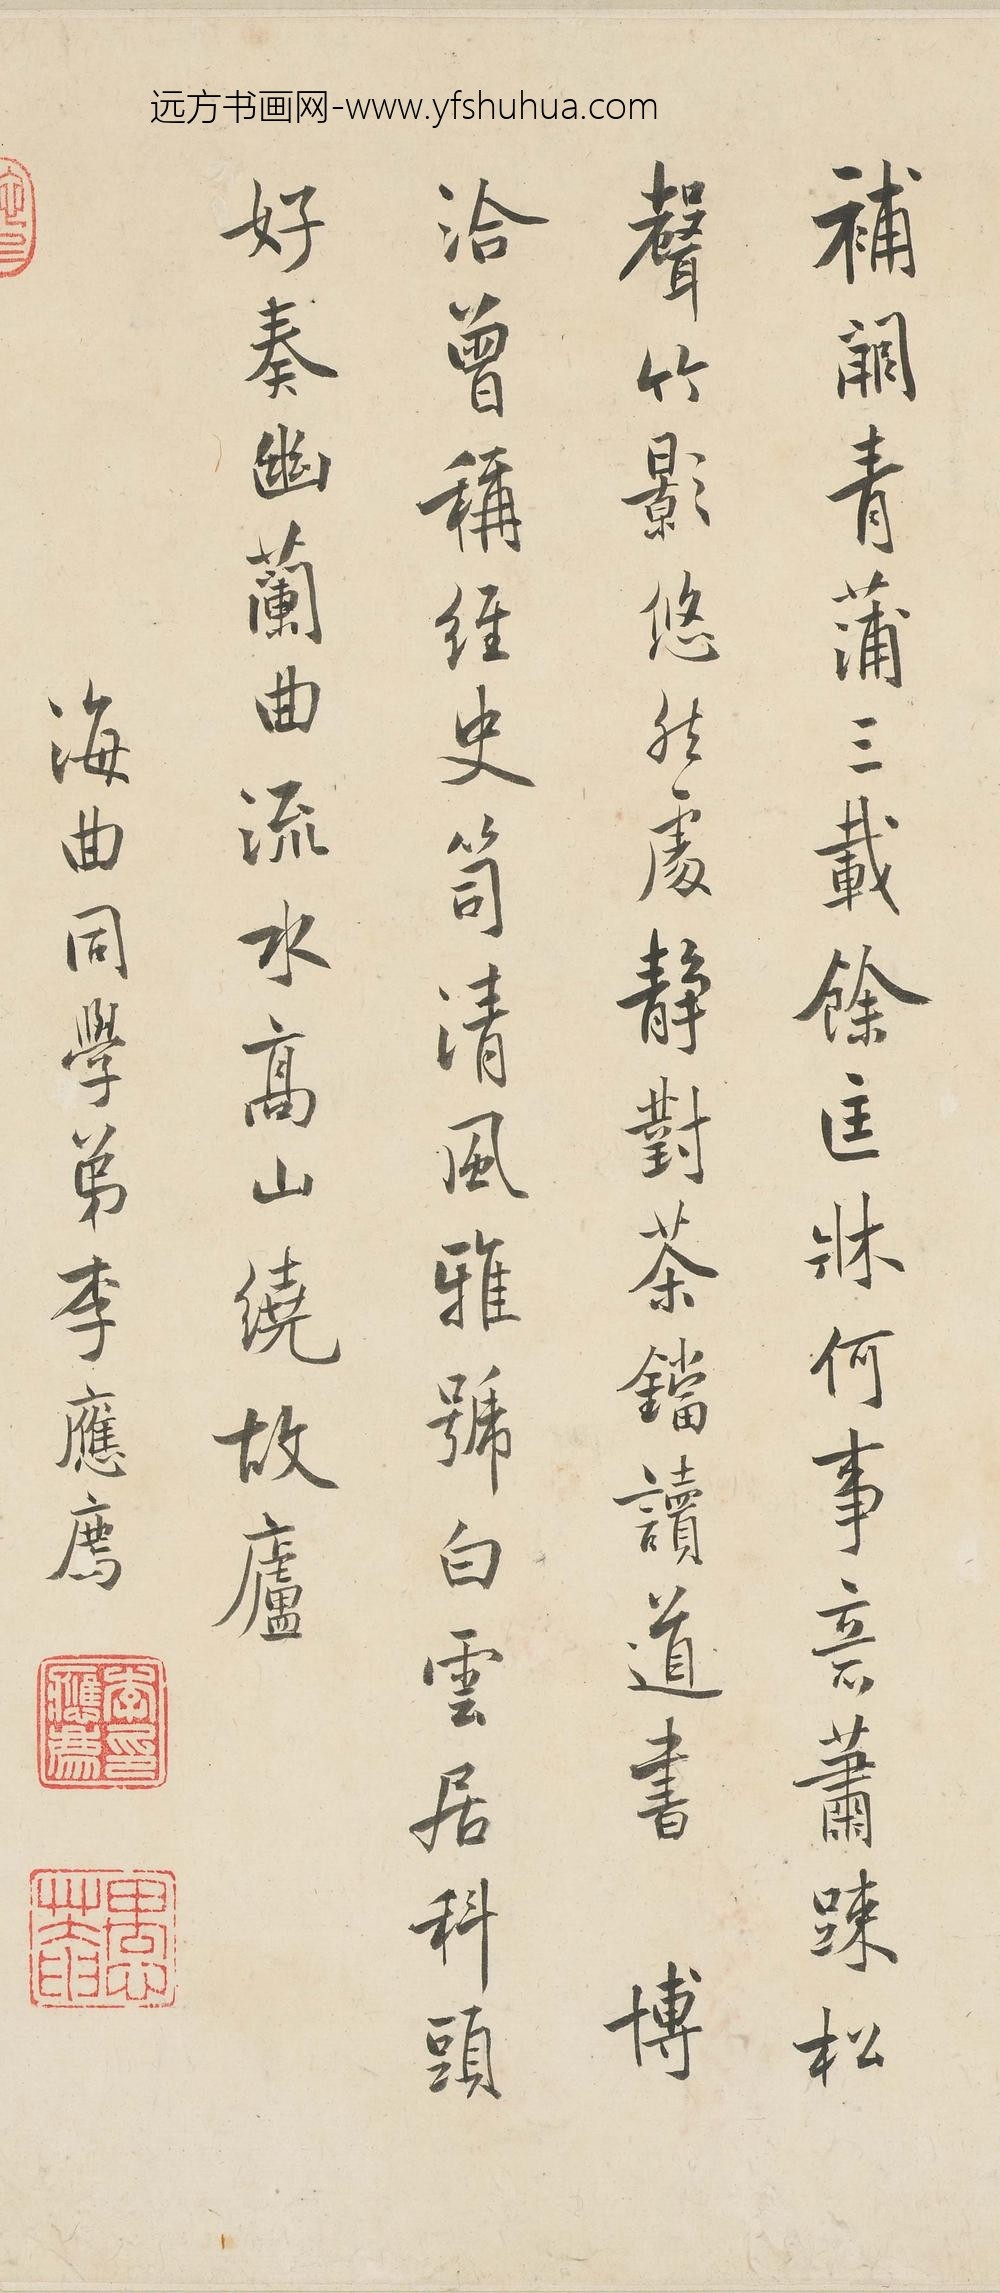 远方书画网-www.yfshuhua.com
補闕青蒲三載餘匡牀何事意蕭踈松
聲竹影悠然處静對茶鐺讀道書 博
洽曾稱經史笥清風雅號白雲居科頭
好奏幽蘭曲流水高山繞故廬
海曲同學弟李應廌